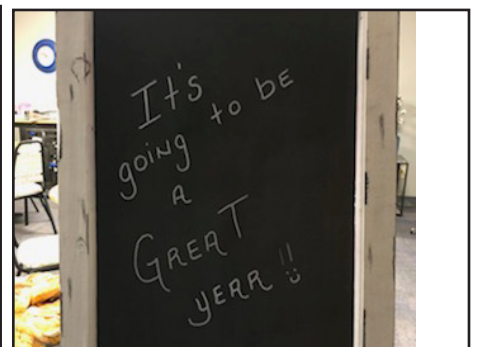 It's
going to be
a
GREAT
YEAR!!